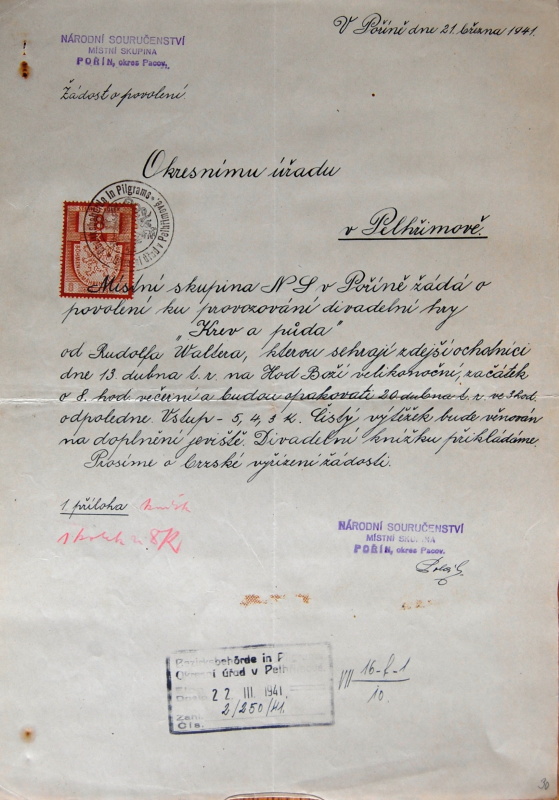 V Poříně dne 21. března 1941.
NÁRODNÍ SOURUČENSTVÍ
MÍSTNÍ SKUPINA
POŘÍN, okres Pacov.
Žádost o povolení.
Okresnímu úřadu
v Pelhřimově.
Místní skupina N S v Poříně žádá o
povolení ku provozování divadelní hry
„Krev a půda"
od Rudolfa Waltera, kterou sehrají zdejší ochotníci
dne 13 dubna t. r. na Hod Boží velikonoční, začátek
o 8. hod. večerní a budou opakovati 20 dubna t. r. ve 3 hod.
odpoledne. Vstup - 5, 4, 3 K. Čistý výtěžek bude věnován
na doplnění jeviště. Divadelní knížku přikládáme.
Prosíme o brzské vyřízení žádosti.
1 příloha
8K
NÁRODNÍ SOURUČENSTVÍ
MÍSTNÍ SKUPINA
POŘÍN, okres Pacov.
Bezirksbehörde in P
Okresní úřad v Pelhřimově
22 III. 1941
2/250/41.
Čís.
VII 16-f-1
10.
30